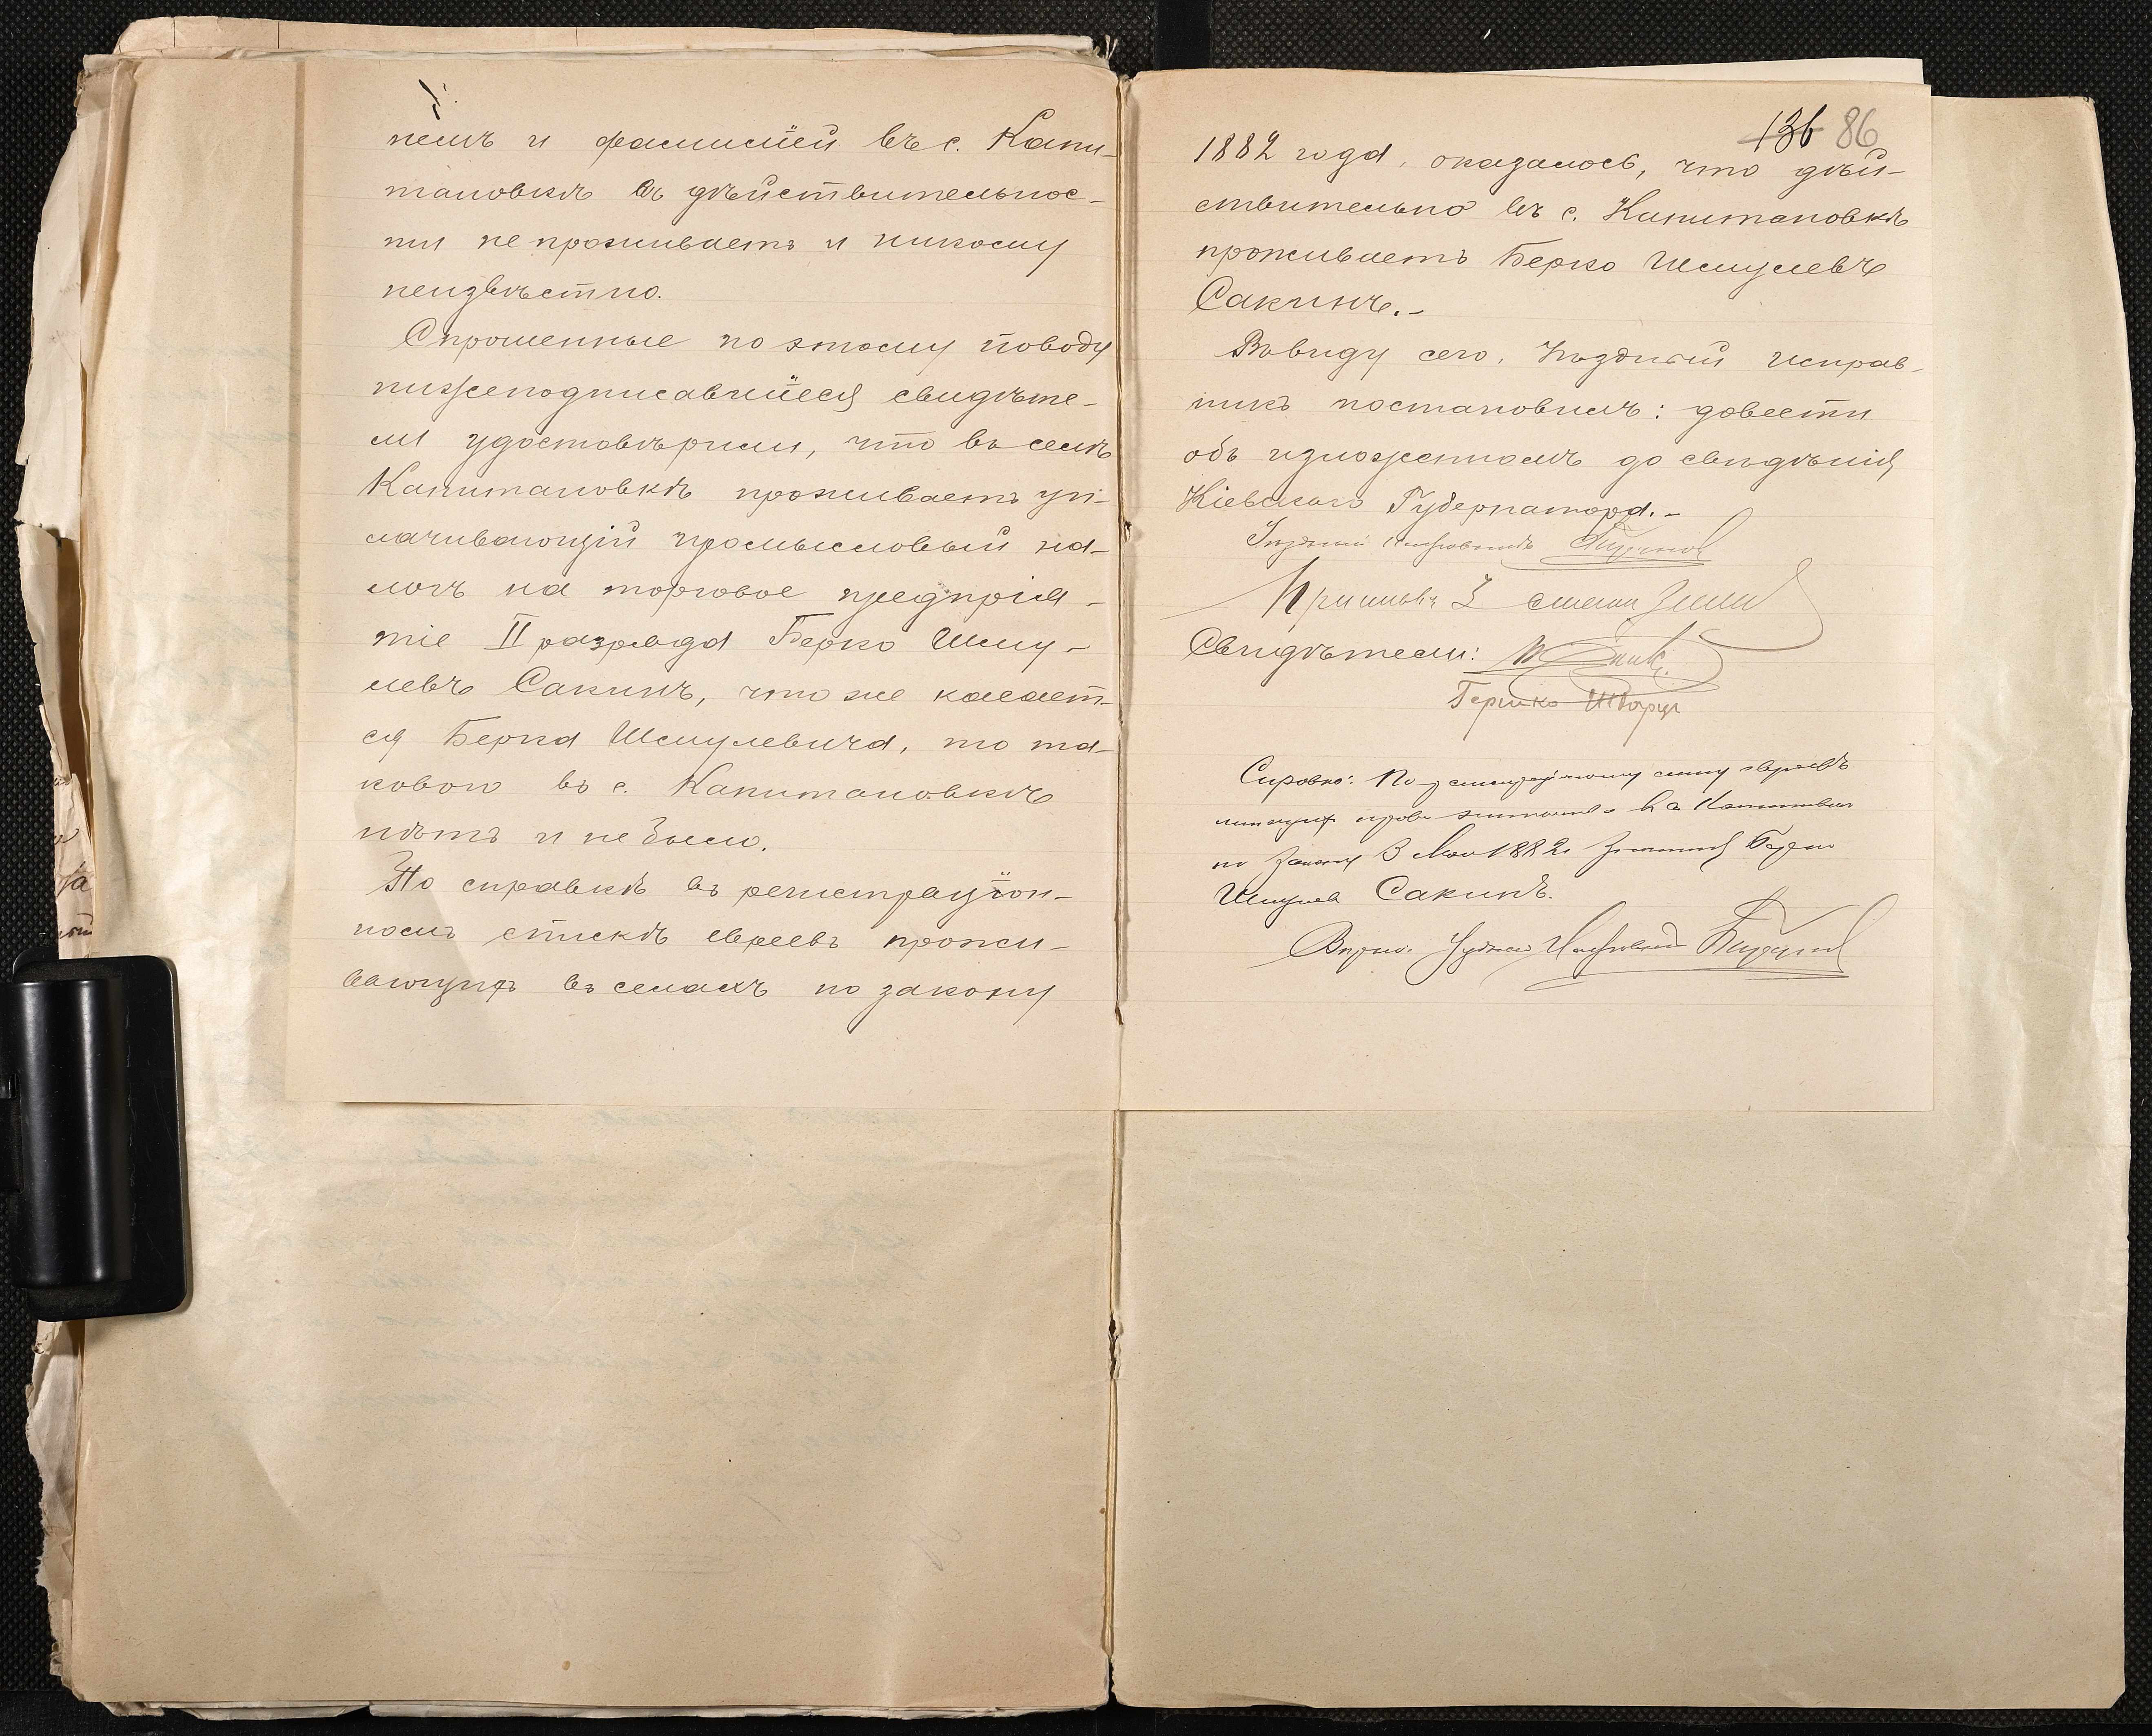 немъ и фамиліей въ с. Капи-
тановкѣ въ дѣйствительнос-
ти не проживаетъ и никому
неизвѣстно.
Спрошенные по этому поводу
нижеподписавшіеся свидѣте-
ли удостовѣрили, что въ селѣ
Капитановкѣ проживаетъ уп-
лачивающій промысловый на-
логъ на торговое предпрія-
тіе II разряда Берко Шму-
левъ Сакинъ, что же касает-
ся Берка Шмулевича, то та-
кового въ с. Капитановкѣ
нѣтъ и не было.
По справкѣ въ регистраціон-
номъ спискѣ евреевъ прожи-
вающихъ въ селахъ по закону
136 86
1882 года, оказалось, что дѣй-
ствительно въ с. Капитановкѣ
проживаетъ Берко Шмулевъ
Сакинъ.-
Ввиду сего, Уѣздный исправ-
никъ постановилъ: довести
объ изложенномъ до свѣдѣнія
Кіевскаго Губернатора.-
Уѣздный Исправникъ
Свидѣтели:
Гершко Шварцъ
Справка: По списку евреевъ
по закону 3 Мая 1882 г. Берко
Шмулев Сакинъ.
Вѣрно: Уѣздный Исправникъ